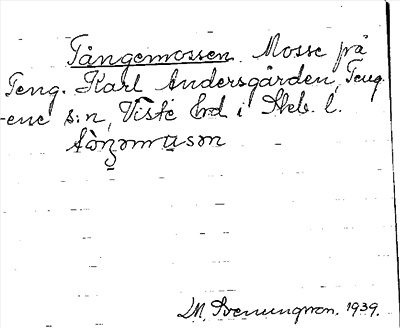 Tångemossen. Mosse på
Teng. Karl Andersgården, Teng-
ene s:n, Viste hd i Skb. l.
LM. Svenungson. 1939.